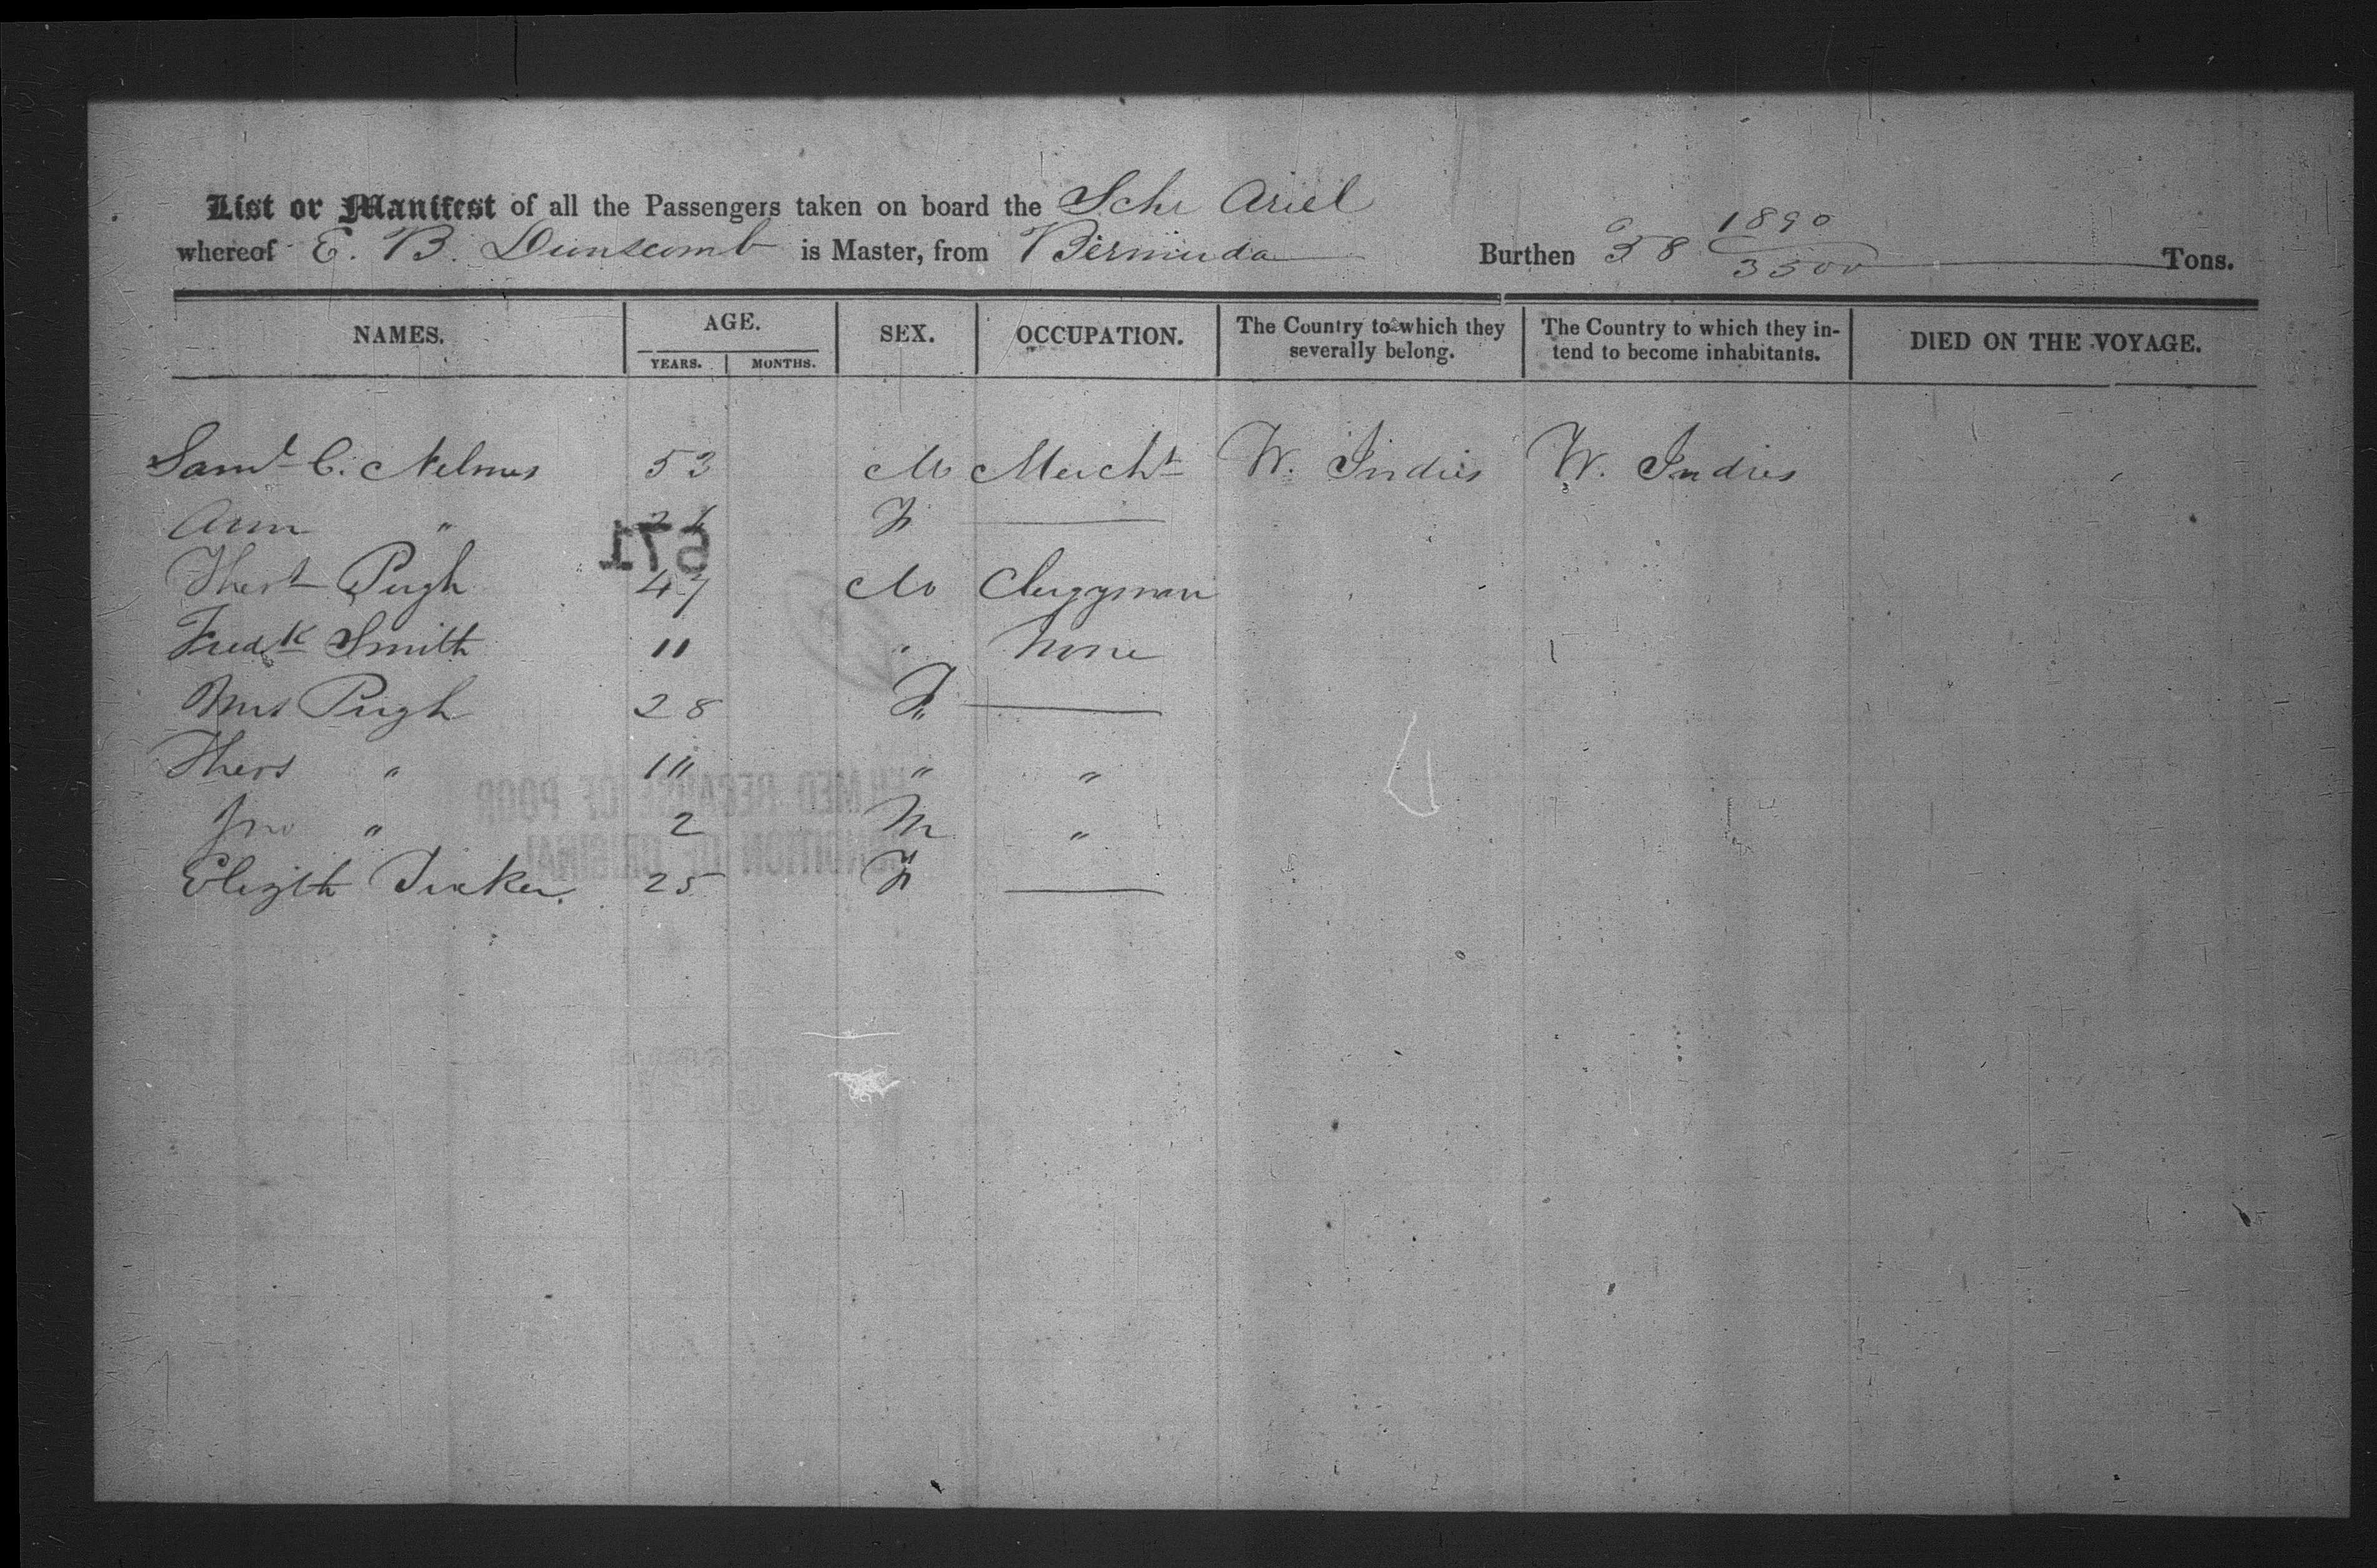 List or Manifest of all the Passengers taken on board the Schr Ariel
whereof E. B. Dunscomb is Master, from Bermuda Burthen 58 1890/3500 Tons.
NAMES. AGE. SEX. OCCUPATION. The Country to which they severally belong. The Country to which they intend to become inhabitants. DIED ON THE VOYAGE.
YEARS. MONTHS.
Saml C. Nelmes 53 M Mercht W. Indies W. Indies
Ann " F
671
Pugh 47 M Clergyman
Fredk Smith 11 " None
Mrs Pugh 28 F
" 11 " "
Jno " 2 M "
FILMED BECAUSE OF POOR
CONDITION OF ORIGINAL
Elizth Tucker 25 F